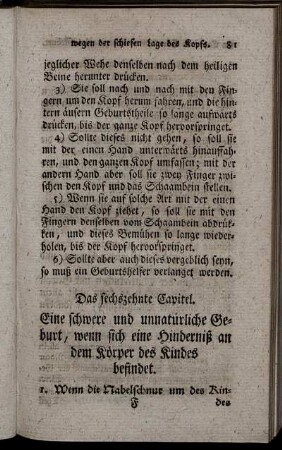 wegen der schiefen Lage des Kopfs. 81
jeglicher Wehe denselben nach dem heiligen
Beine herunter drücken.
3) Sie soll nach und nach mit den Fin-
gern um den Kopf herum fahren, und die hin-
tern äusern Geburtstheile so lange aufwärts
drücken, bis der ganze Kopf hervorspringet.
4) Sollte dieses nicht gehen, so soll sie
mit der einen Hand unterwärts hinauffah-
ren, und den ganzen Kopf umfassen; mit der
andern Hand aber soll sie zwey Finger zwi-
schen den Kopf und das Schaambein stellen.
5) Wenn sie auf solche Art mit der einen
Hand den Kopf ziehet, so soll sie mit den
Fingern denselben vom Schaambein abdrü-
cken, und dieses Bemühen so lange wieder-
holen, bis der Kopf hervorspringet.
6) Sollte aber auch dieses vergeblich seyn,
so muß ein Geburtshelfer verlanget werden.
Das sechszehnte Capitel.
Eine schwere und unnatürliche Ge-
burt, wenn sich eine Hinderniß an
dem Körper des Kindes
befindet.
1. Wenn die Nabelschnur um des Kin-
F des